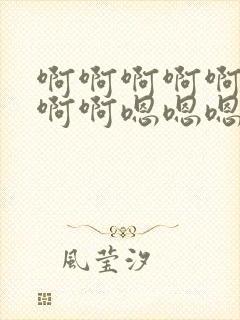 啊啊啊啊啊
啊啊嗯嗯嗯
風莹汐